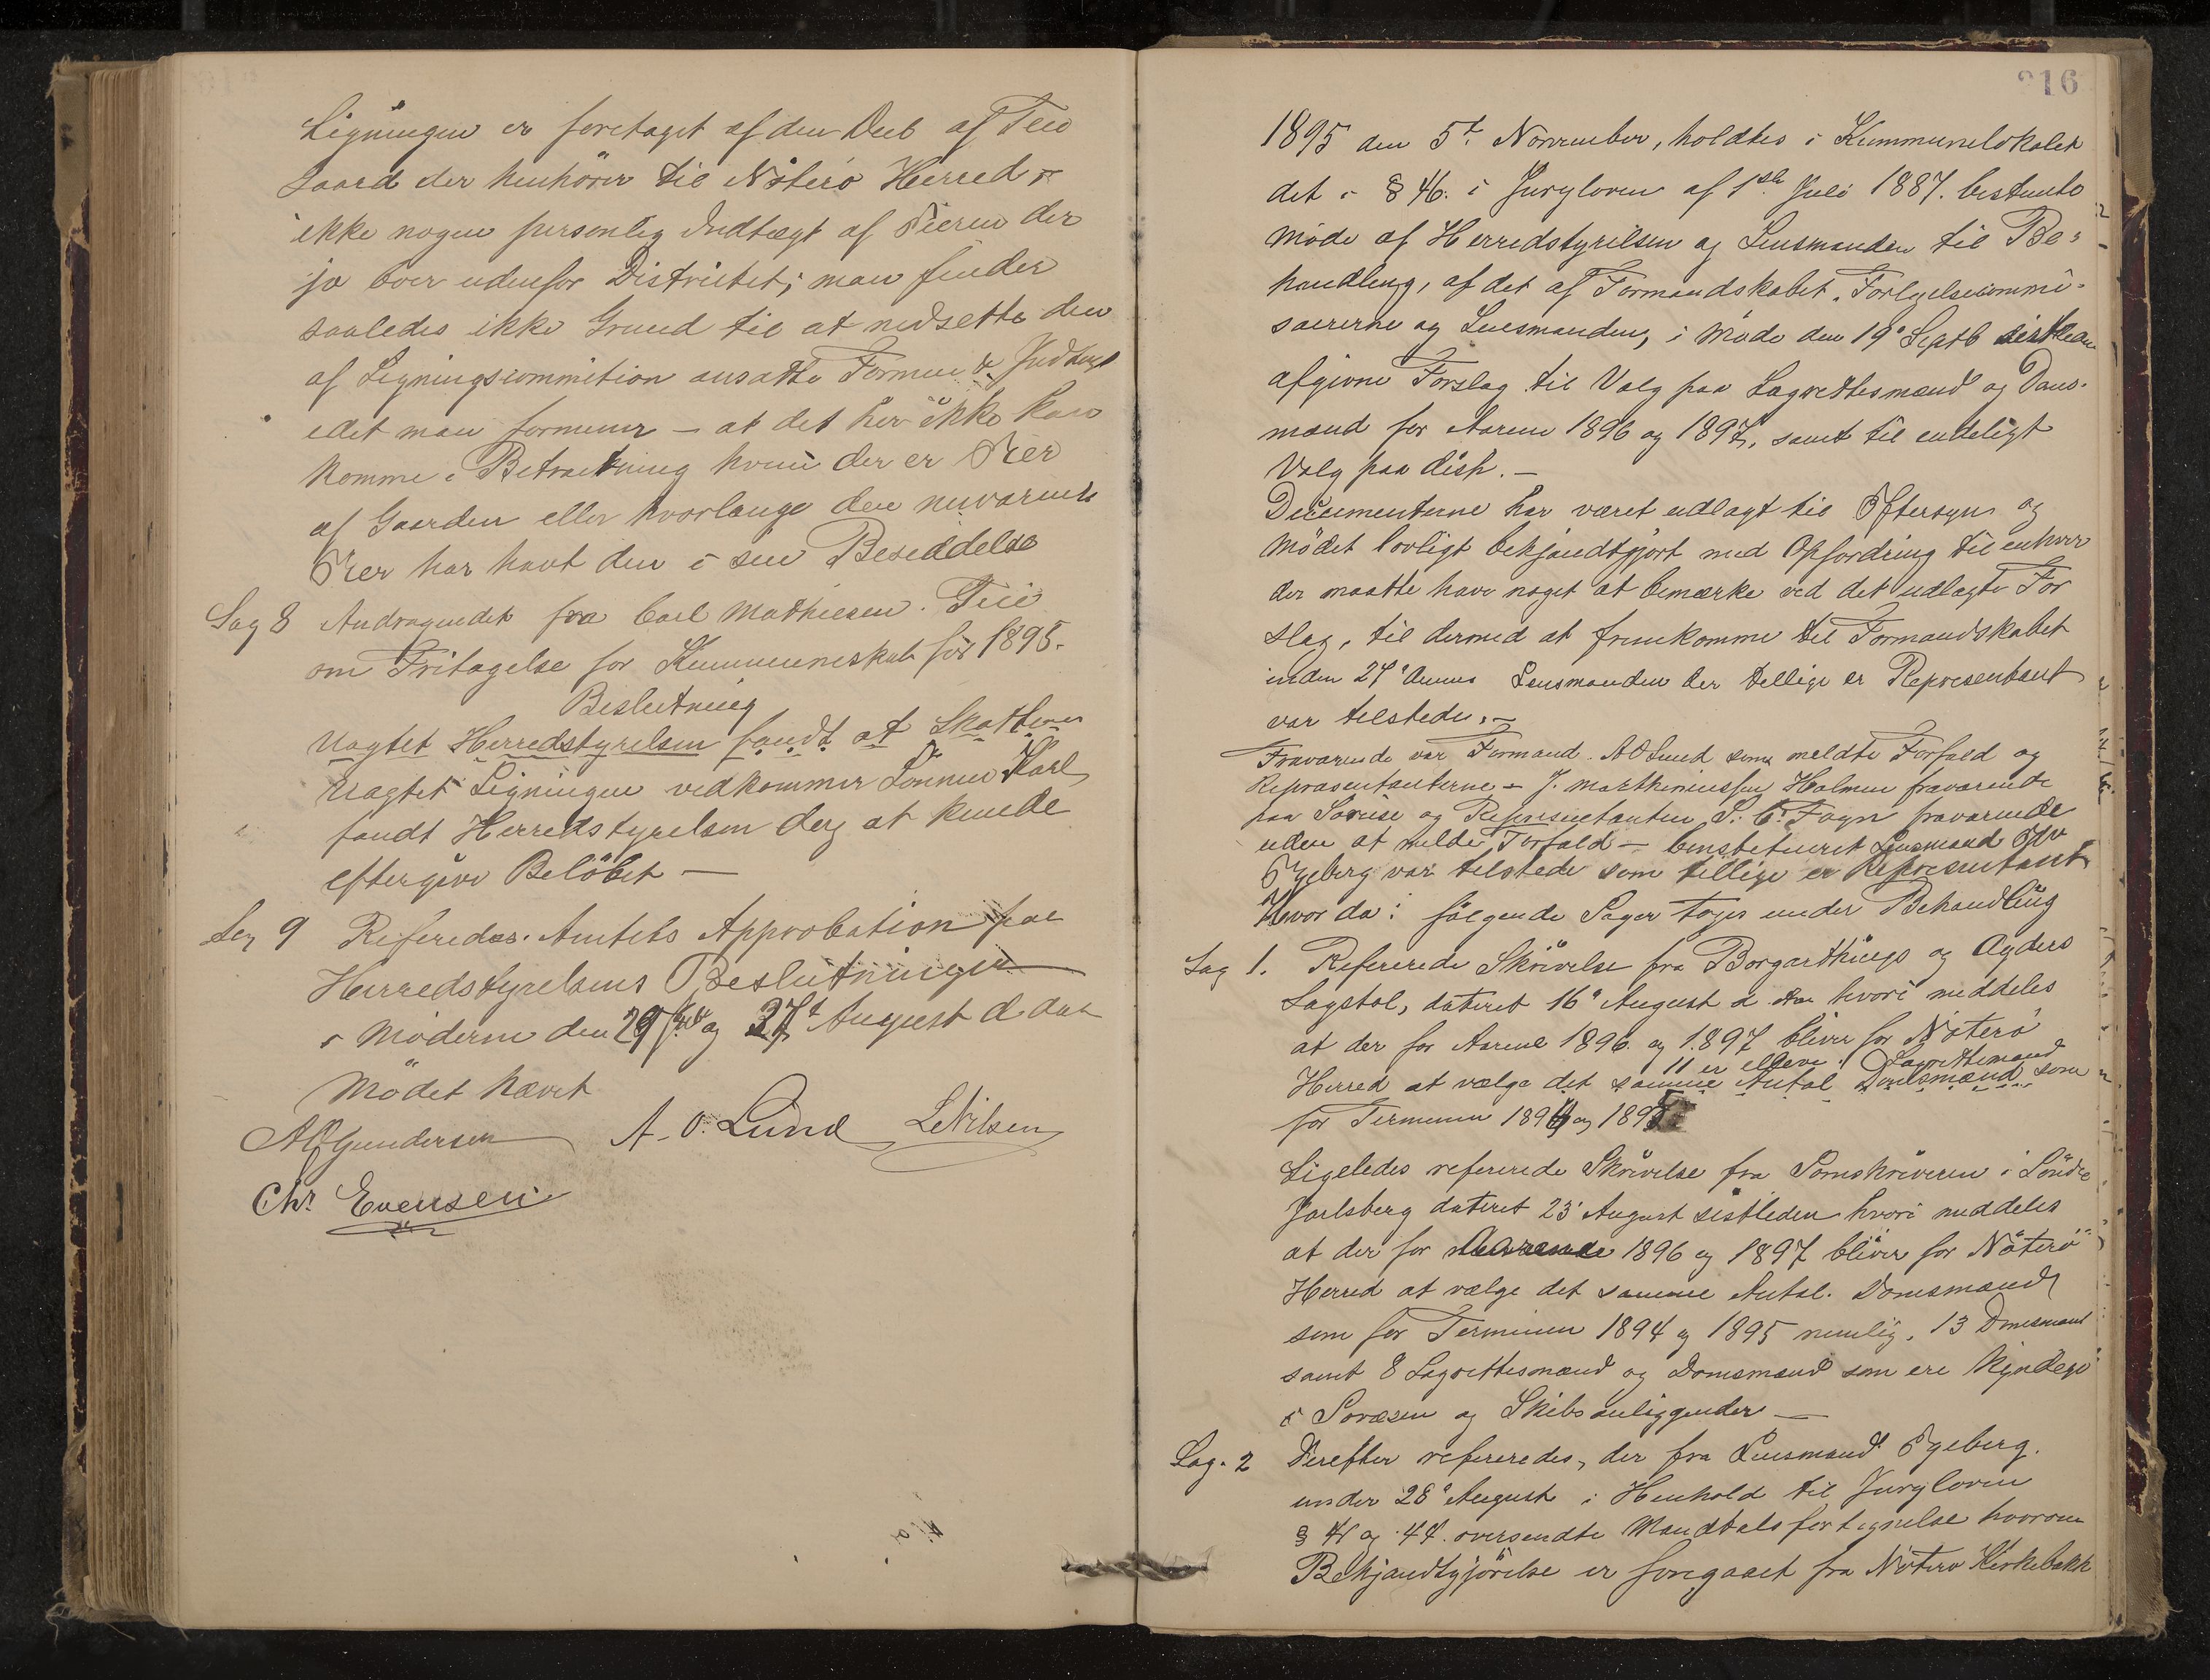 Ligningen er foretaget af den Deel af Teie
Gaard der henhörer til Nöterö Herred og
ikke nogen personlig Indtægt af Eieren der
jo boer udenfor Districtet; man finder
saaledes ikke Grund til at nedsette den
af Ligningscommition ansatte Formue & Indtægt
idet man formener – at det her ikke kan
komme i Betraktning hvem der er Eier
af Gaarden eller hvorlænge den nuværende
Eier har havt den i sin Besiddelse
Sag 8 Andragendet fra Carl Mathiesen. Teie
om Fritagelse for Kummuneskat for 1895.
Beslutning
Uagtet Herredstyrelsen fandt at Skatten
Uagtet Ligningen vedkommer Sönnen Karl
fandt Herredstyrelsen dog at kunde
eftergive Belöbet –
Sag 9 Referedes. Amtets Approbation paa
Herredstyrelsens Beslutninger
i Möderne den 29 og 27t August d. Aar
Mödet hævet
A. O. Lund LNilsen
Gundersen
Chr Evensen
216
1895 den 5t November, holdtes i Kummunelokalet
det i § 46. i Juryloven af 1ste Juli 1887. bestemte
Möde af Herredstyrelsen og Lensmanden til Be-
handling, af det af Formandskabet. Forligelsecommi-
saererne og Lensmanden, i Möde den 19' Septb sistleden
afgivne Forslag til Valg paa Lagrettesmænd og Doms-
mænd for Aarene 1896 og 1897, samt til endeligt
Valg paa disse. –
Documenterne har været udlagt til Eftersyn og
Mödet lovligt bekjendtgjort med Opfordring til enhver
der maatte have noget at bemærke ved det udlagte For
slag, til dermed at fremkomme til Formandskabet
inden 24' dennes Lensmanden der tillige er Representant
var tilstede. –
Fraværende var Formand. A O Lund som meldte Forfald og
Repræsentanterne – J. Marthiniussen Holmen fraværende
paa Soreise og Representanten S. C. Fogn fraværende
uden at melde Forfald – Constitueret Lensmand
Egeberg var tilstede som tillige er Representant
Hvor da: fölgende Sager toges under Behandling
Sag 1. Refererede Skrivelse fra Borgarthings og Agders
Lagstol, dateret 16' August d. Aar hvori meddeles
at der for Aarene 1896. og 1897 bliver for Nöterö
11 er elleve. Lagrettemænd
Herred at vælge det samme Antal Domsmænd som
for Terminen 1894 og 1895
Ligeledes refererede Skrivelse fra Sorenskriveren i Söndre
Jarlsberg dateret 23' August sistleden hvori meddeles
at der for Aarene 1896 og 1897 bliver for Nöterö
Herred at vælge det samme Antal. Domsmænd
som for Terminen 1894 og 1895 nemlig. 13 Domsmænd
samt 8 Lagrettesmænd og Domsmænd som ere kyndige
i Sövæsen og Skibsanliggender –
Sag. 2 Derefter refereredes, der fra Lensmand Egeberg.
under 28' August i Henhold til Juryloven
§ 41 og 44. oversendte Mandtalsfortegnelse hvorom
Bekjendtgjörelse er foregaaet fra Nöterö Kirkebakk